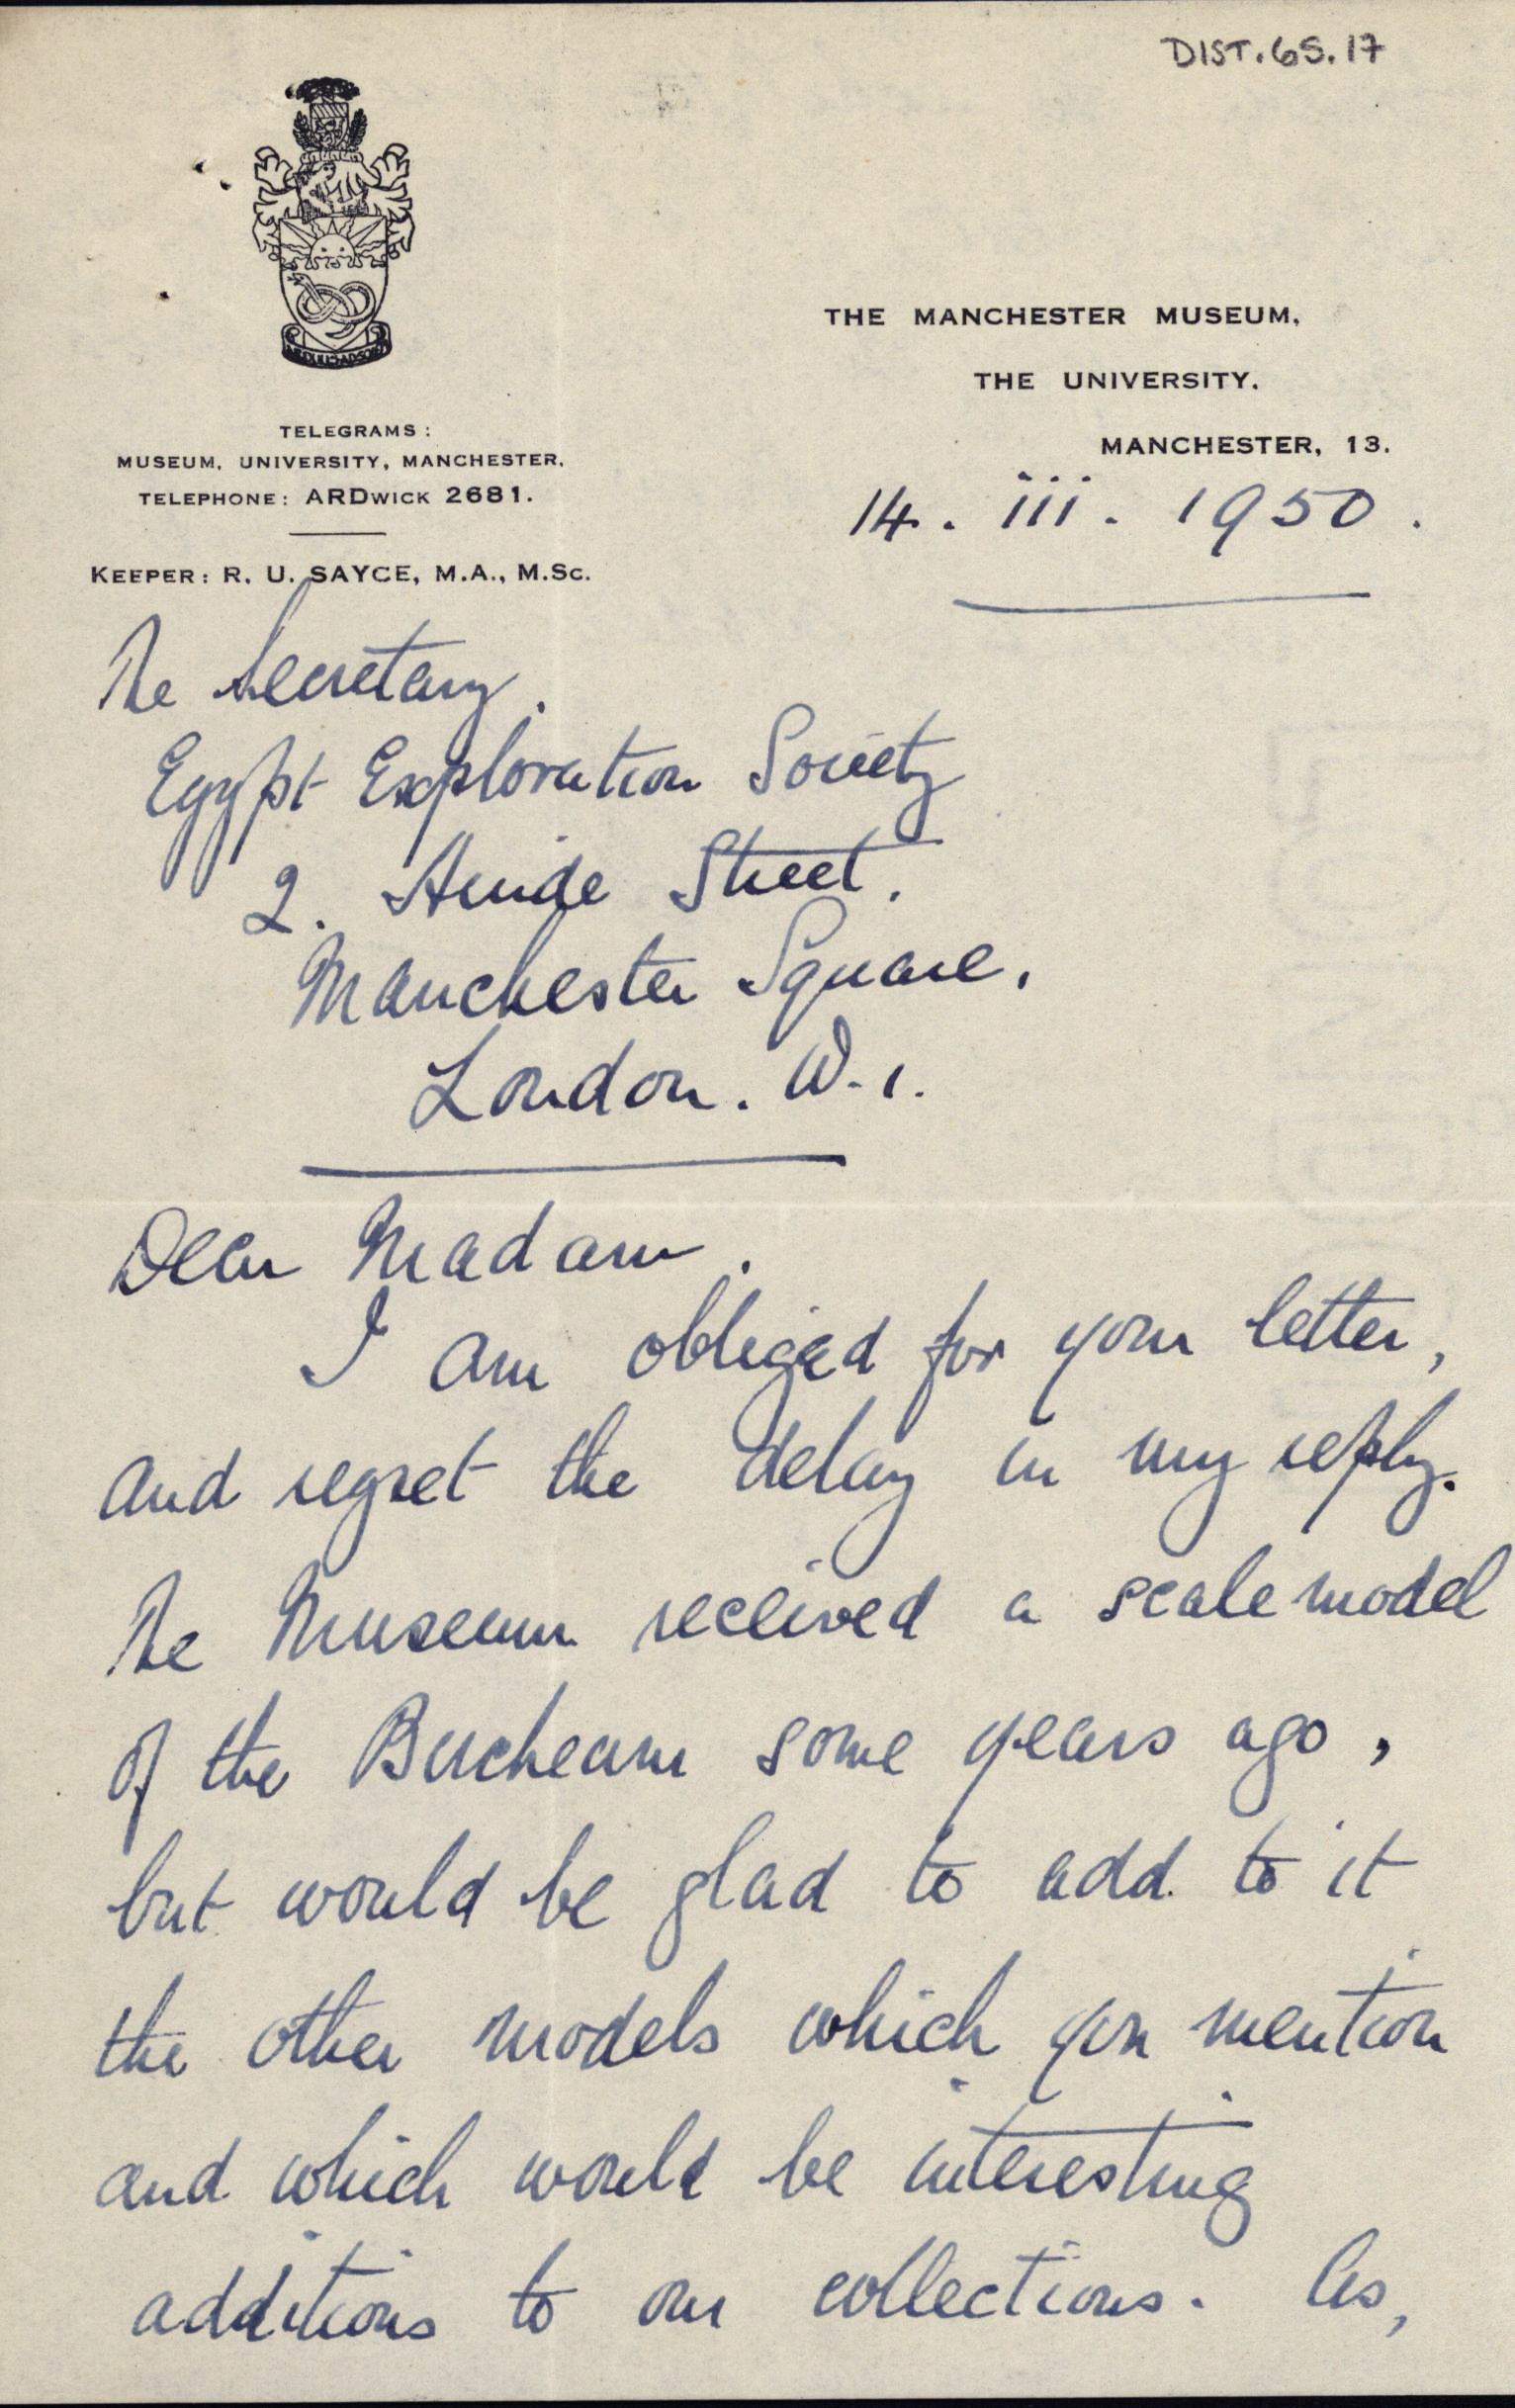 DIST.65.17
THE MANCHESTER MUSEUM,
THE UNIVERSITY.
MANCHESTER, 13.
TELEGRAMS:
MUSEUM, UNIVERSITY, MANCHESTER.
TELEPHONE: ARDWICK 2681.
KEEPER: R. U. SAYCE, M.A., M.Sc.
14. iii. 1950.
The Secretary.
Egypt Exploration Society
2. Hinde Street.
Manchester Square.
London. W.1.
Dear Madam.
I am obliged for your letter,
and regret the delay in my reply.
The Museum received a scale model
of the Bucheum some years ago,
but would be glad to add to it
the other models which you mention
and which would be interesting
additions to our collections. As,